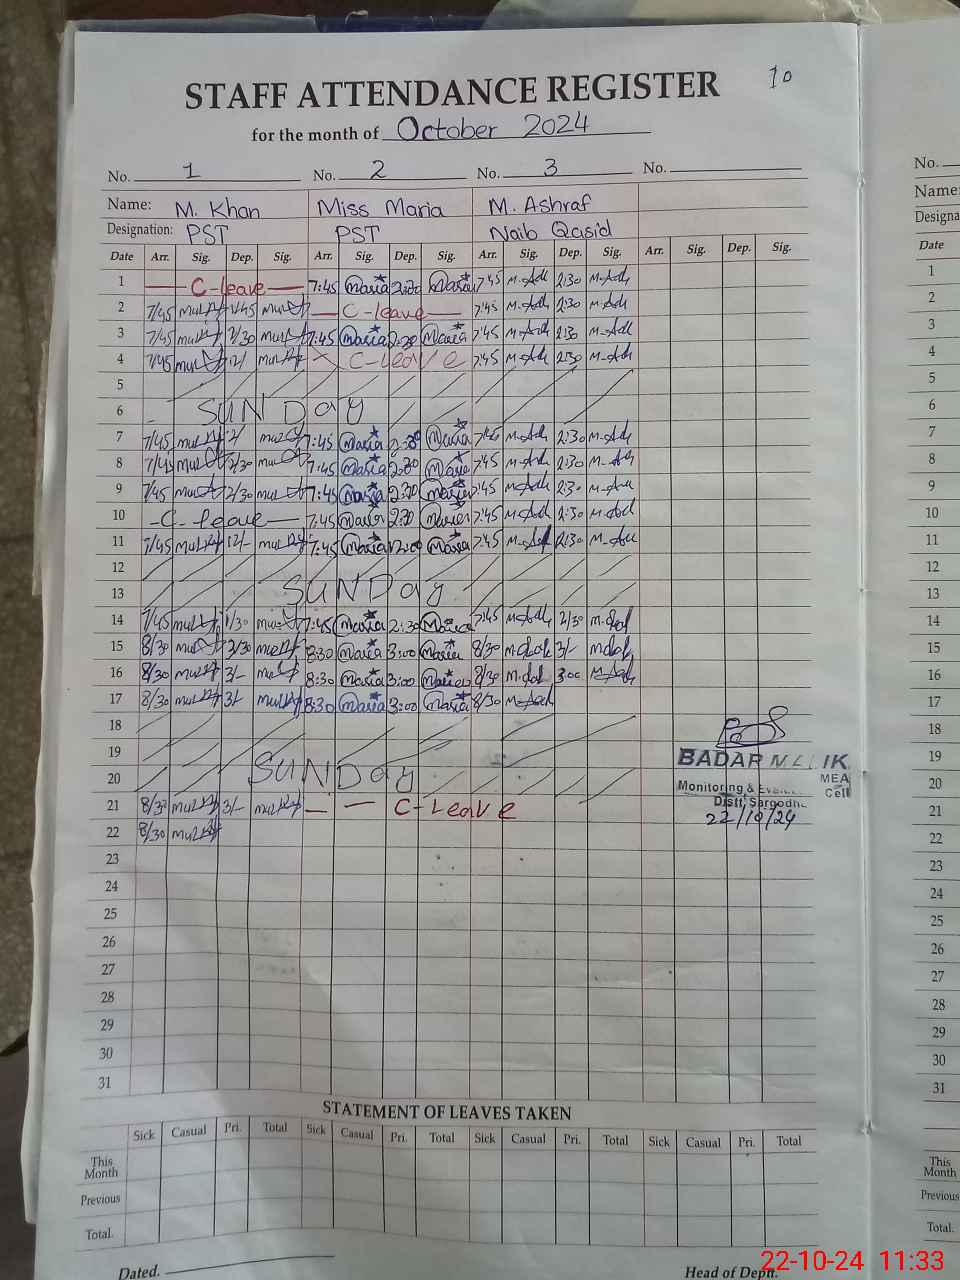 10
STAFF ATTENDANCE REGISTER
for the month of October 2024
No. 1 No. 2 No. 3 No.
Name: M. Khan Miss Maria M. Ashraf
Designation: PST PST Naib Qasid
Date Arr. Sig. Dep. Sig. Arr. Sig. Dep. Sig. Arr. Sig. Dep. Sig. Arr. Sig. Dep. Sig.
1 C-leave 7:45 Maria 2:30 Maria 7:45 2:30
2 7/45 1/45 C-leave 7:45 2:30
3 7/45 2/30 7:45 Maria 2:30 Maria 7:45 2:30
4 7/45 12/ C-leave 7:45 2:30
5
6 SUNDay
7 7/45 7:45 Maria 2:30 Maria 7:45 2:30
8 7/45 2/30 7:45 Maria 2:30 Maria 7:45 2:30
9 7/45 2/30 7:45 Maria 2:30 Maria 7:45 2:30
10 -C-leave- 7:45 Maria 2:30 Maria 7:45 2:30
11 7/45 12/- 7:45 Maria 12:00 Maria 7:45 2:30
12
13 SUNDay
14 7/45 1/30 7:45 Maria 2:30 Maria 7:45 2/30
15 8/30 2/30 8:30 Maria 3:00 Maria 8/30 3/-
16 8/30 3/- 8:30 Maria 3:00 Maria 8/30 3:00
17 8/30 3/- 8:30 Maria 3:00 Maria 8/30
18
19
20 SUNDay
21 8/30 3/- C-Leave
22 8/30
23
24
25
26
27
28
29
30
31
BADAR MALIK
MEA
Monitoring &
Cell
Distt. Sargodha
22/10/24
STATEMENT OF LEAVES TAKEN
Sick Casual Pri. Total Sick Casual Pri. Total Sick Casual Pri. Total Sick Casual Pri. Total
This Month
Previous
Total.
Dated. Head of Deptt.
No.
Name:
Designa
Date
1
2
3
4
5
6
7
8
9
10
11
12
13
14
15
16
17
18
19
20
21
22
23
24
25
26
27
28
29
30
31
This
Month
Previous
Total.
22-10-24 11:33